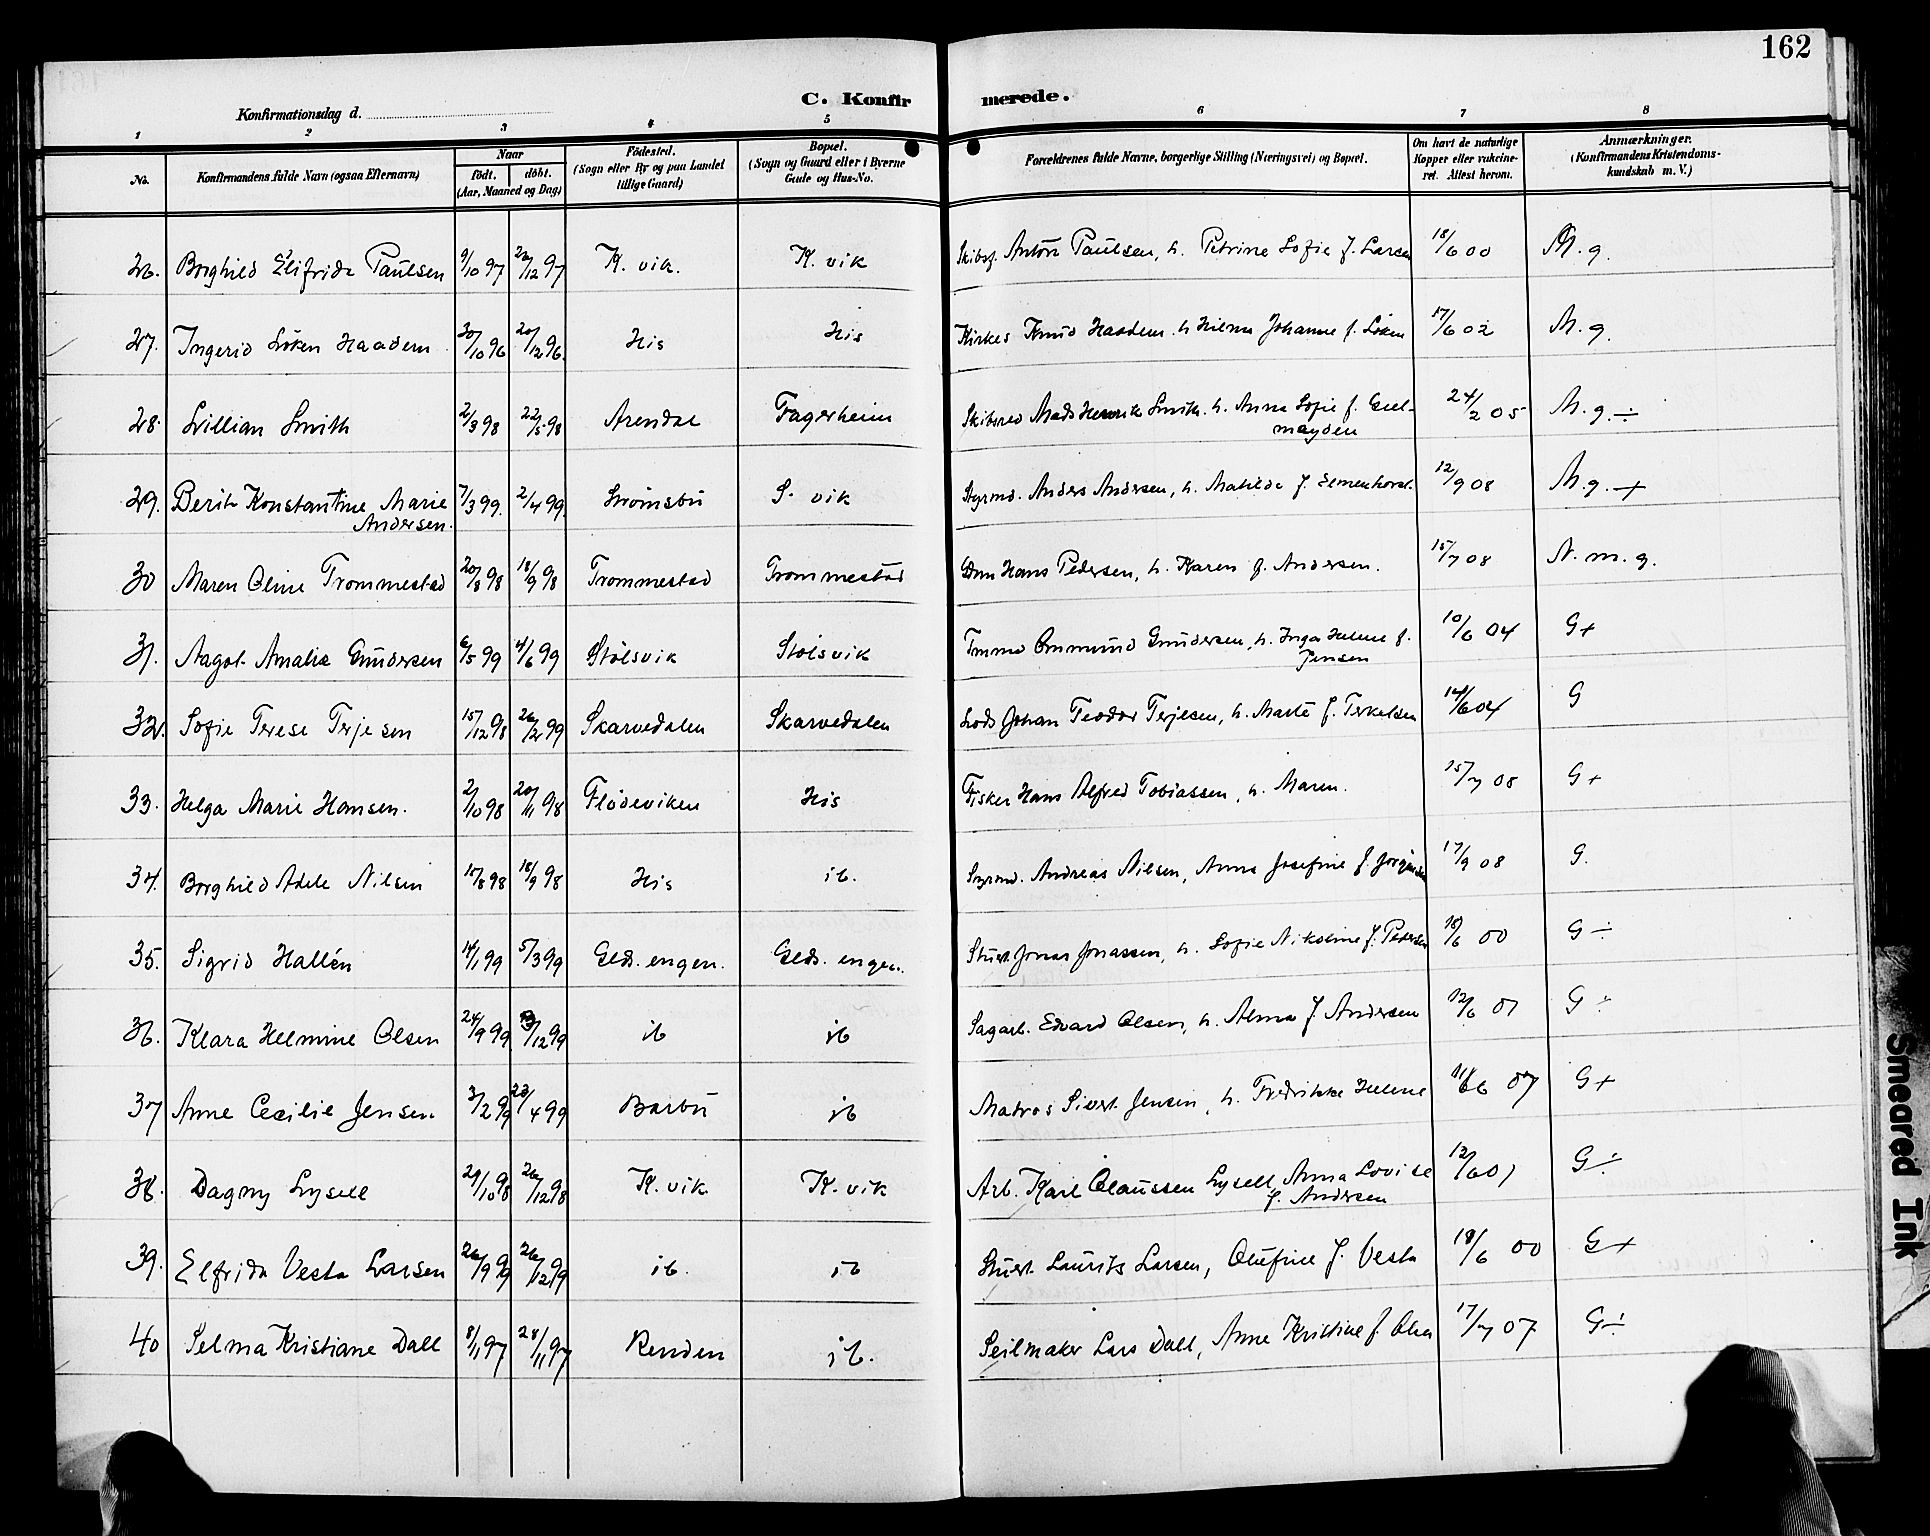 162
C. Konfir merede.
Konfirmationsdag d.
1 2 3 4 5 6 7 8
No.
Konfirmandens fulde Navn (ogsaa Efternavn)
Naar
født. døbt.
(Aar, Maaned og Dag)
Fødested.
(Sogn eller By og paa Landet
tillige Gaard)
Bopæl.
(Sogn og Gaard eller i Byerne
Gade og Hus-No.
Forældrenes fulde Navne, borgerlige Stilling (Næringsvei) og Bopæl.
Om havt de naturlige
Kopper eller vakcine-
ret. Attest herom.
Anmærkninger.
(Konfirmandens Kristendoms-
kundskab m. V.)
26. Borghild Elifrida Paulsen 9/10 97 26/12 97 K. vik. K. vik Skibsf. Anton Paulsen, h. Petrine Sofie f. Larsen 18/6 00 M. g.
27. Ingerid Løken Haadem 30/10 96 20/12 96. His His Kirkes Knud Haadem h Hilma Johanne f. Løken 17/6 02 M. g.
28. Lillian Smith 2/3 98 22/5 98 Arendal Fagerheim Skibsred Mads Henrik Smith. h. Anna Sofie f. Geel-
mayden 24/2 05 M. g. ÷
29. Berit Konstantine Marie
Andersen. 7/3 99. 2/4 99. Strømsbu S. vik Styrmd. Anders Andersen, h. Matilde f. Esmenhorst. 12/9 08 M. g. +
30 Maren Oline Trommestad 20/8 98 18/9 98 Trommestad Trommestad Gbm Hans Pedersen, h. Karen f. Andersen. 15/7 08 N. m. g.
31. Aagot Amalie Gundersen 6/5 99 4/6 99 Stølsvik Stølsvik Tmmd Ommund Gundersen, h. Inga Helene f.
Jensen 10/6 04 G+
32. Sofie Terese Terjesen 15/12 98 26/2 99 Skarvedalen Skarvedalen Lods Johan Teodor Terjesen, h. Marte f. Terkelsen 14/6 04 G
33. Helga Marie Hansen. 2/10 98 20/11 98 Flødeviken His Fisker Hans Alfred Tobiassen, h. Maren. 15/7 08 G+
34. Borghild Adele Nilsen 15/8 98 18/9 98 His ib. Styrmd. Andreas Nilsen, Anna Josefine f. Jørgensen 17/9 08 G.
35. Sigrid Hallén 14/1 99 5/3 99 Geds. engen. Geds. engen. Stuert Jonas Jonassen, h. Sofie Nikoline f. Pedersen 18/6 00 G ÷
36. Klara Helmine Olsen 24/9 99 /12 99 ib ib Sagarb. Edvard Olsen, h. Alma f Andersen 12/6 01 G ÷
37 Anne Cecilie Jensen 3/2 99 23/4 99 Barbu ib Matros Sivert Jensen, h. Fredrikke Helene 11/6 07 G+
38. Dagny Lysell 29/10 98 26/12 98 K. vik K. vik Arb. Karl Claussen Lysell, Anna Lovise
f. Andersen 12/6 01 G ÷
39. Elfrida Vesta Larsen 26/9 99 26/12 99 ib. ib Stuert Laurits Larsen, Olufine f Vesta 18/6 00 G+
40 Selma Kristiane Dall 8/1 97 28/11 97 Renden ib. Seilmaker Lars Dall, Anne Kristine f. Olsen 17/7 07 G ÷
Smeared Ink